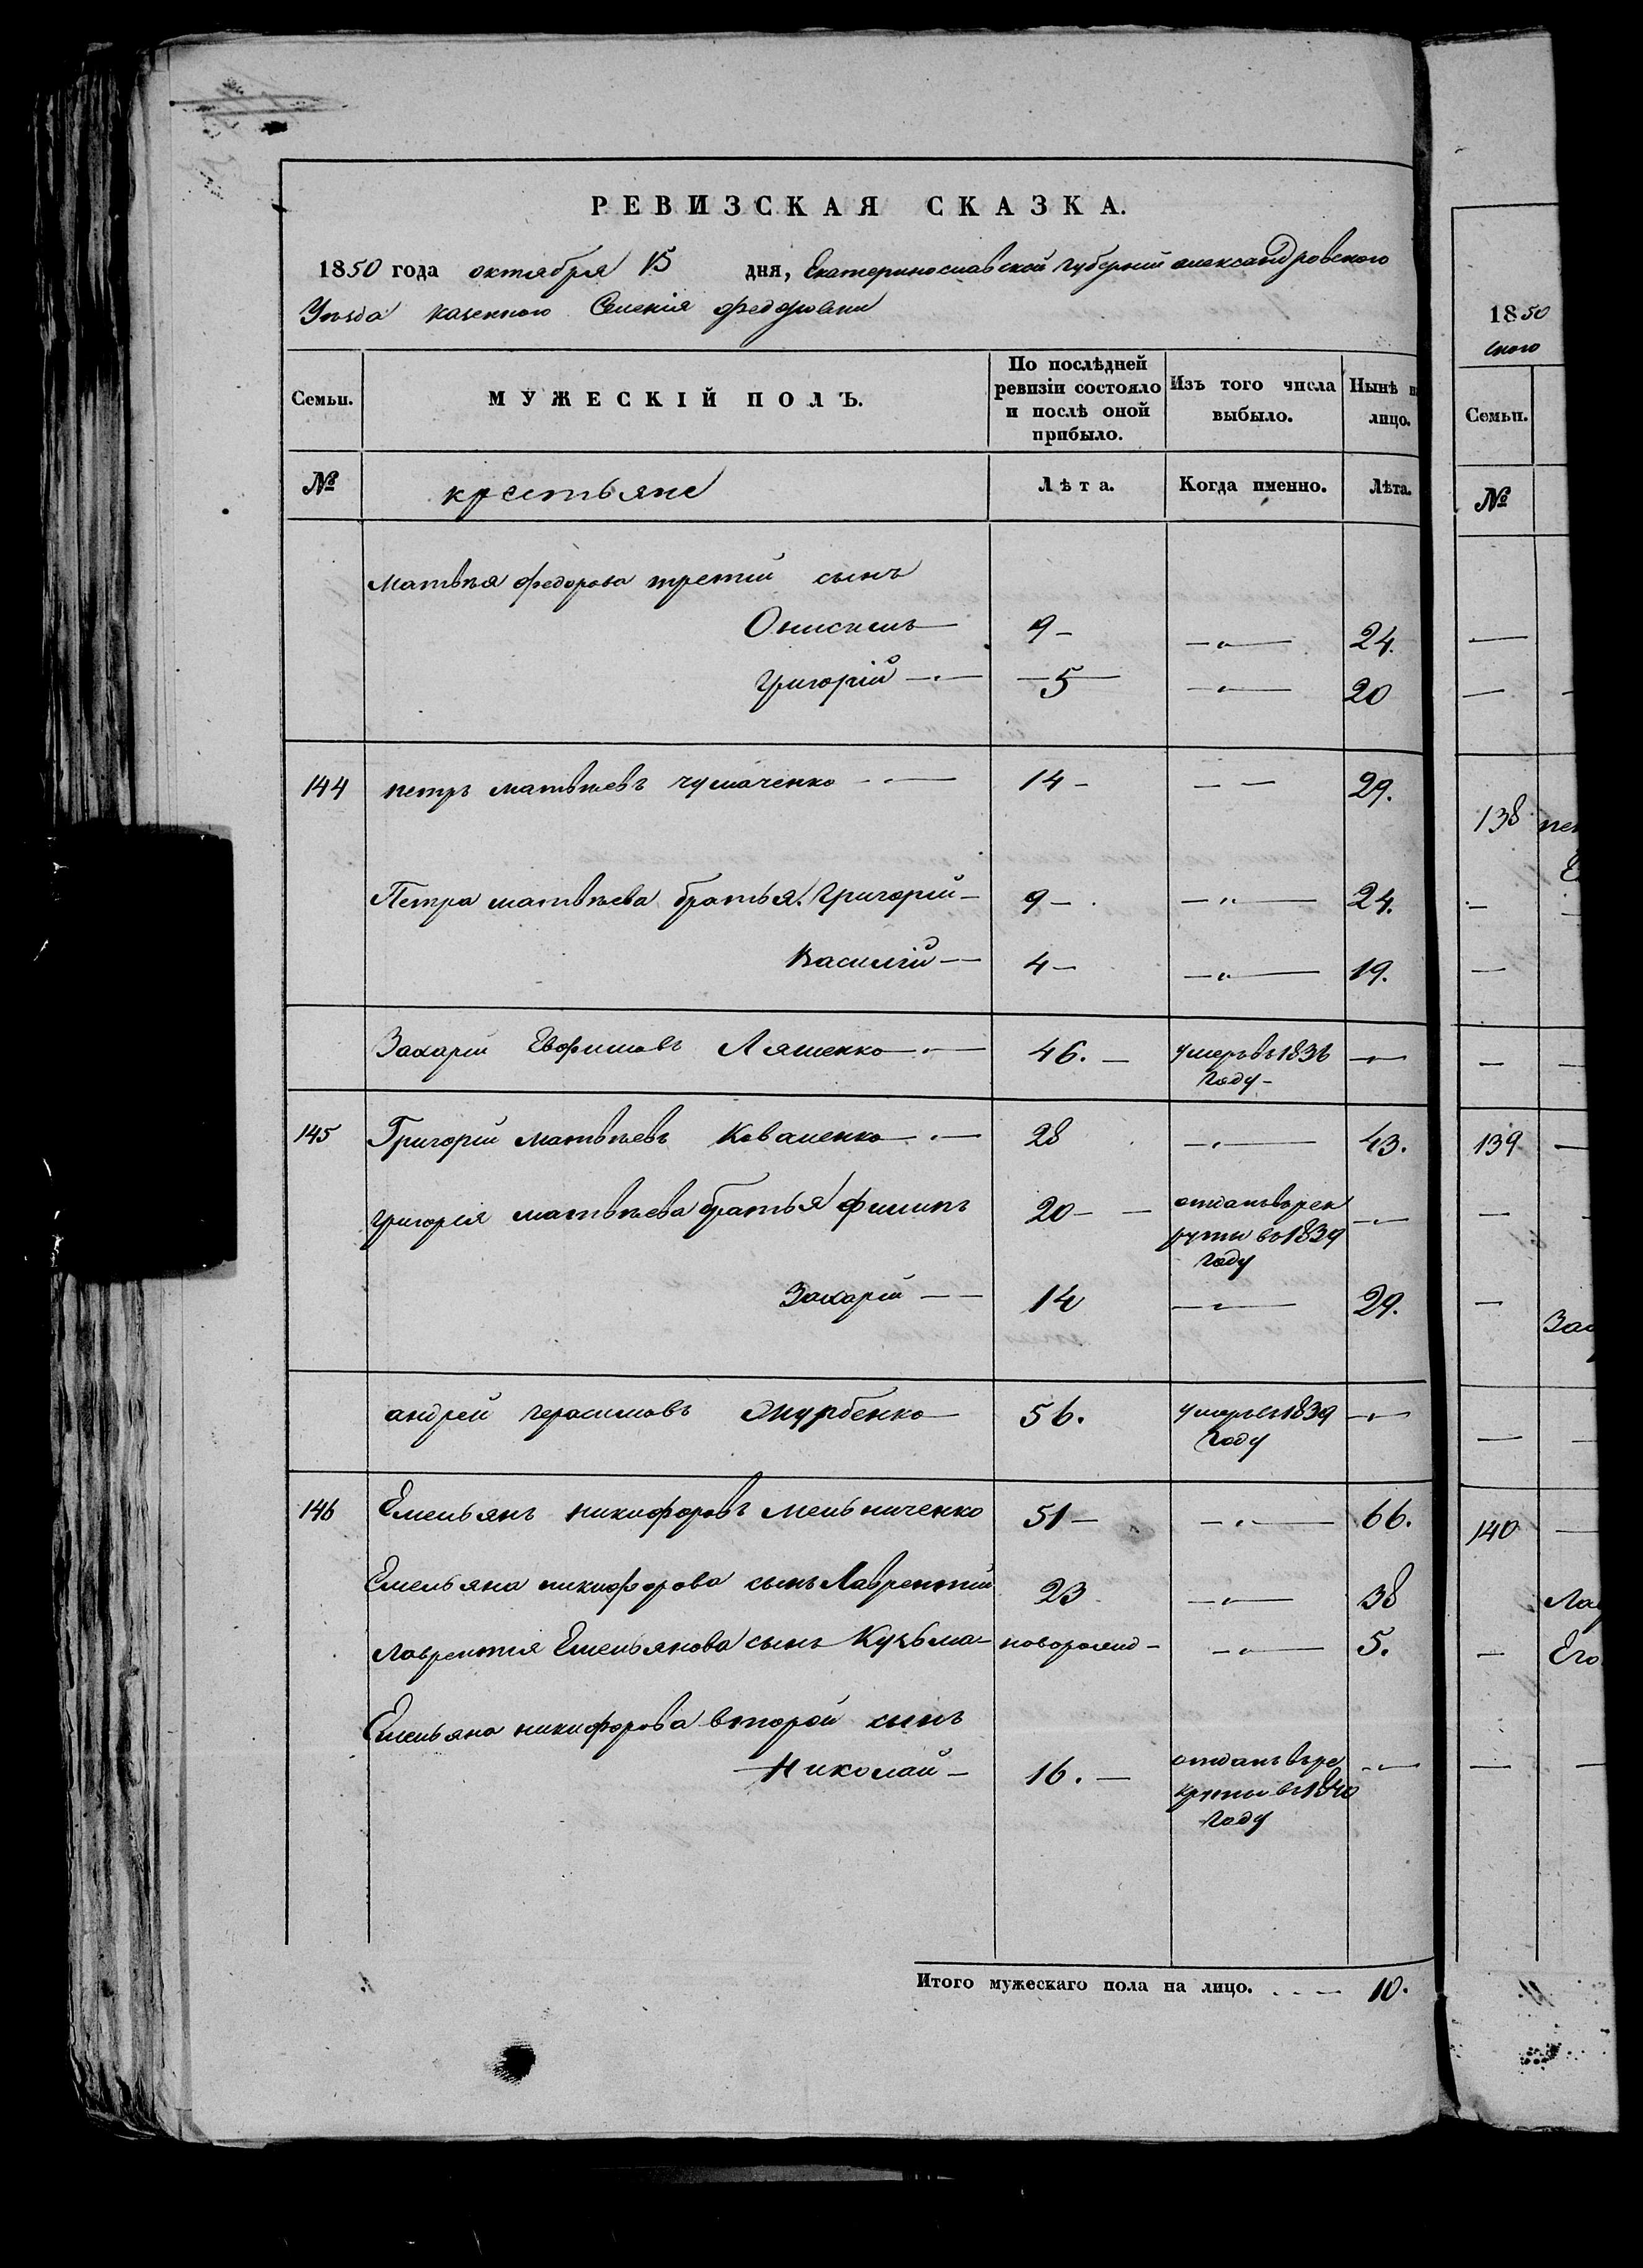 РЕВИЗСКАЯ СКАЗКА.
1850 года октября 15 дня, Екатеринославской губерніи александровского
Уезда казенного Селенія федоровки
Семьи. МУЖЕСКІЙ ПОЛЪ. По послѣдней ревизіи состояло и послѣ оной прибыло. Изъ того числа выбыло. Нынѣ н лицо.
№ крестьяне Лѣта. Когда именно. Лѣта.
Матвѣя федорова третий сынъ
Онисимъ 9 24.
Григорій 5 20
144 петръ матвѣевъ чумаченко 14 29.
Петра матвѣева братья Григорій 9 24.
Василій 4 19.
Захарій Евфимовъ Ляшенко 46. умеръ въ 1836
году
145 Григорій матвѣевъ Коваленко 28 43.
григорія матвѣева братья филипъ 20 отданъ врек
руты въ 1839
году
Захарій 14 29.
андрей герасимовъ 56. умеръ въ 1839
году
146 Емельянъ никифоровъ мельниченко 51 66.
Емельяна никифорова сынъ Лаврентий 23 38
лаврентія Емельянова сынъ Кузьма новорожд 5.
Емельяна никифорова второй сынъ
Николай 16. отданъ въре
круты въ 1840
году
Итого мужескаго пола на лицо. 10.
1850
ского
Семьи.
№
138
139
Зах
140
Лав
Его